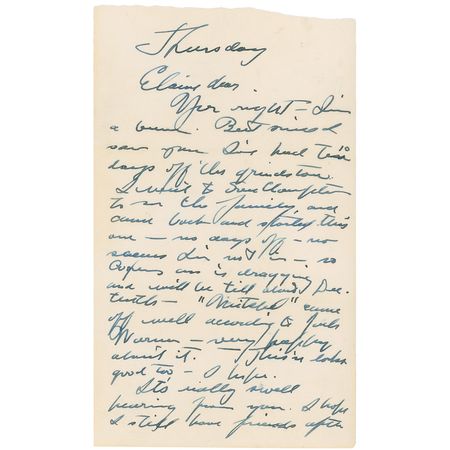 Thursday
Elaine dear.
Your right – I'm
a bum. But since I
saw you I've had two
days off this grindstone.
I went to Southampton
to see the family, and
came back and started this
one – no days off – no
scenes I'm not in – so
Coopers ass is dragging
and will be till about Dec.
tenth – "Mitchell" came
off well according to Jack
Warner – very happy
about it. This'n looks
good too – I hope.
It's really swell
hearing from you. I hope
I still have friends after